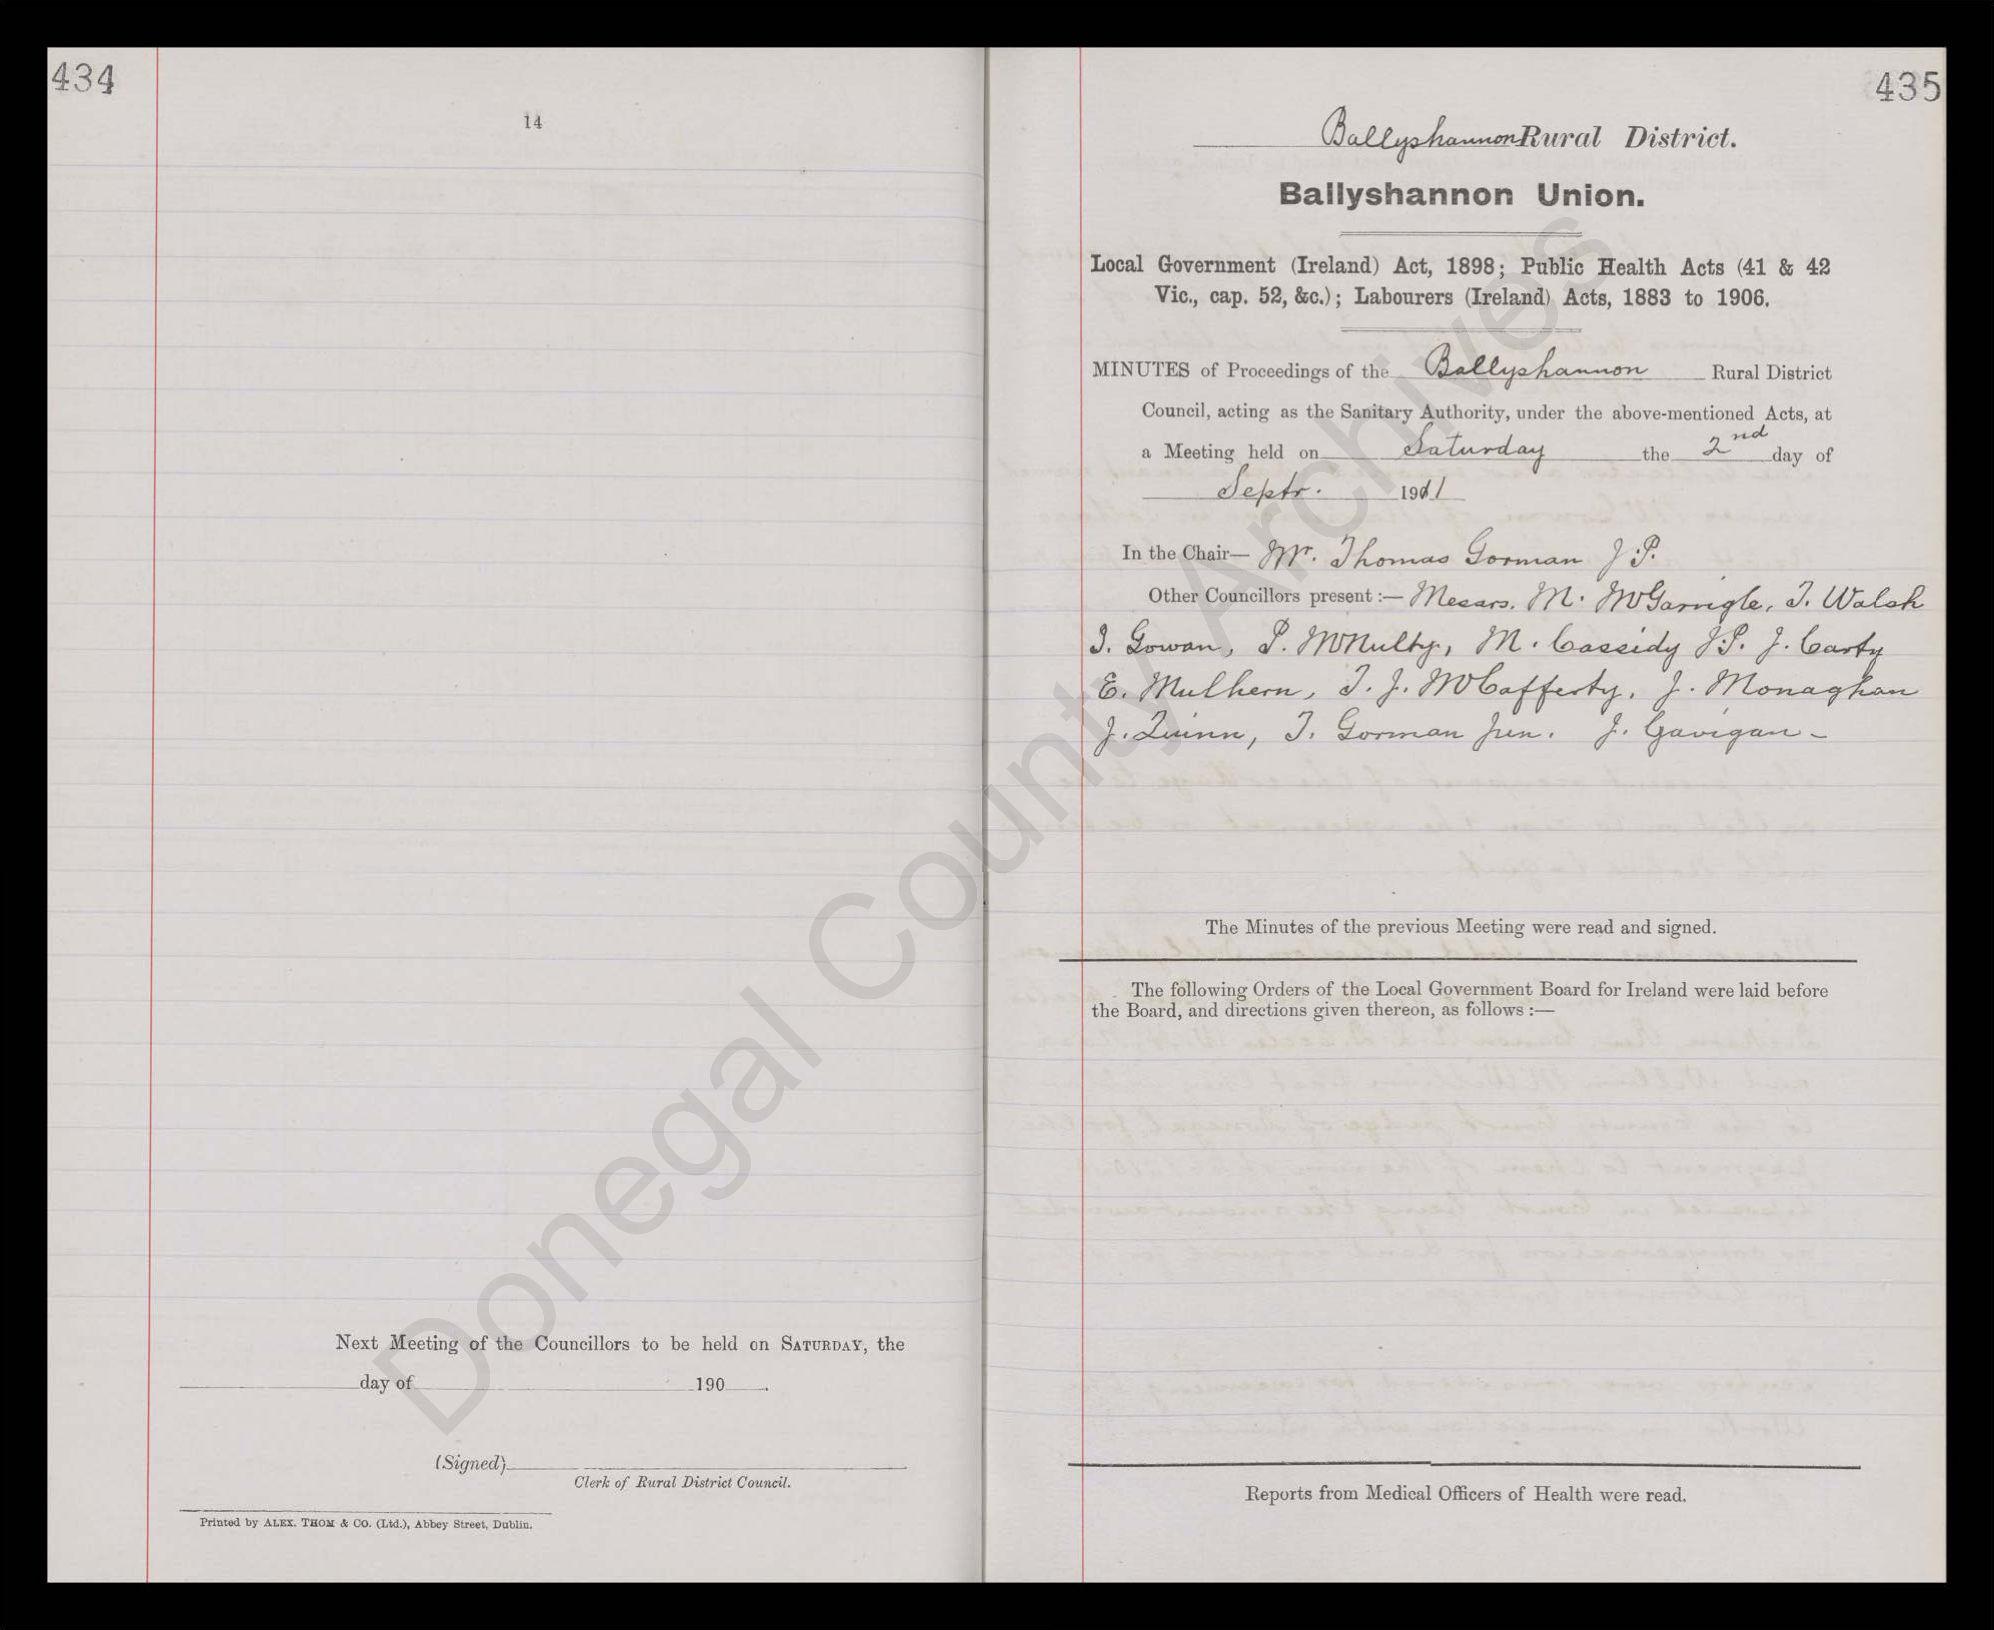 434
14
Next Meeting of the Councillors to be held on SATURDAY, the
day of 190 .
(Signed)
Clerk of Rural District Council.
Printed by ALEX. THOM & CO. (Ltd.), Abbey Street, Dublin.
435
Ballyshannon Rural District.
Ballyshannon Union.
Local Government (Ireland) Act, 1898; Public Health Acts (41 & 42
Vic., cap. 52, &c.); Labourers (Ireland) Acts, 1883 to 1906.
MINUTES of Proceedings of the Ballyshannon Rural District
Council, acting as the Sanitary Authority, under the above-mentioned Acts, at
a Meeting held on Saturday the 2nd day of
Septr. 1911
In the Chair— Mr. Thomas Gorman J.P.
Other Councillors present :— Messrs. M. McGarrigle, T. Walsh
I. Gowan, P. McNulty, M. Cassidy J.P. J. Carty
E. Mulhern, T. J. McCafferty, J. Monaghan
J. Quinn, T. Gorman Jun. J. Gavigan -
The Minutes of the previous Meeting were read and signed.
The following Orders of the Local Government Board for Ireland were laid before
the Board, and directions given thereon, as follows :—
Reports from Medical Officers of Health were read.
Donegal County Archives